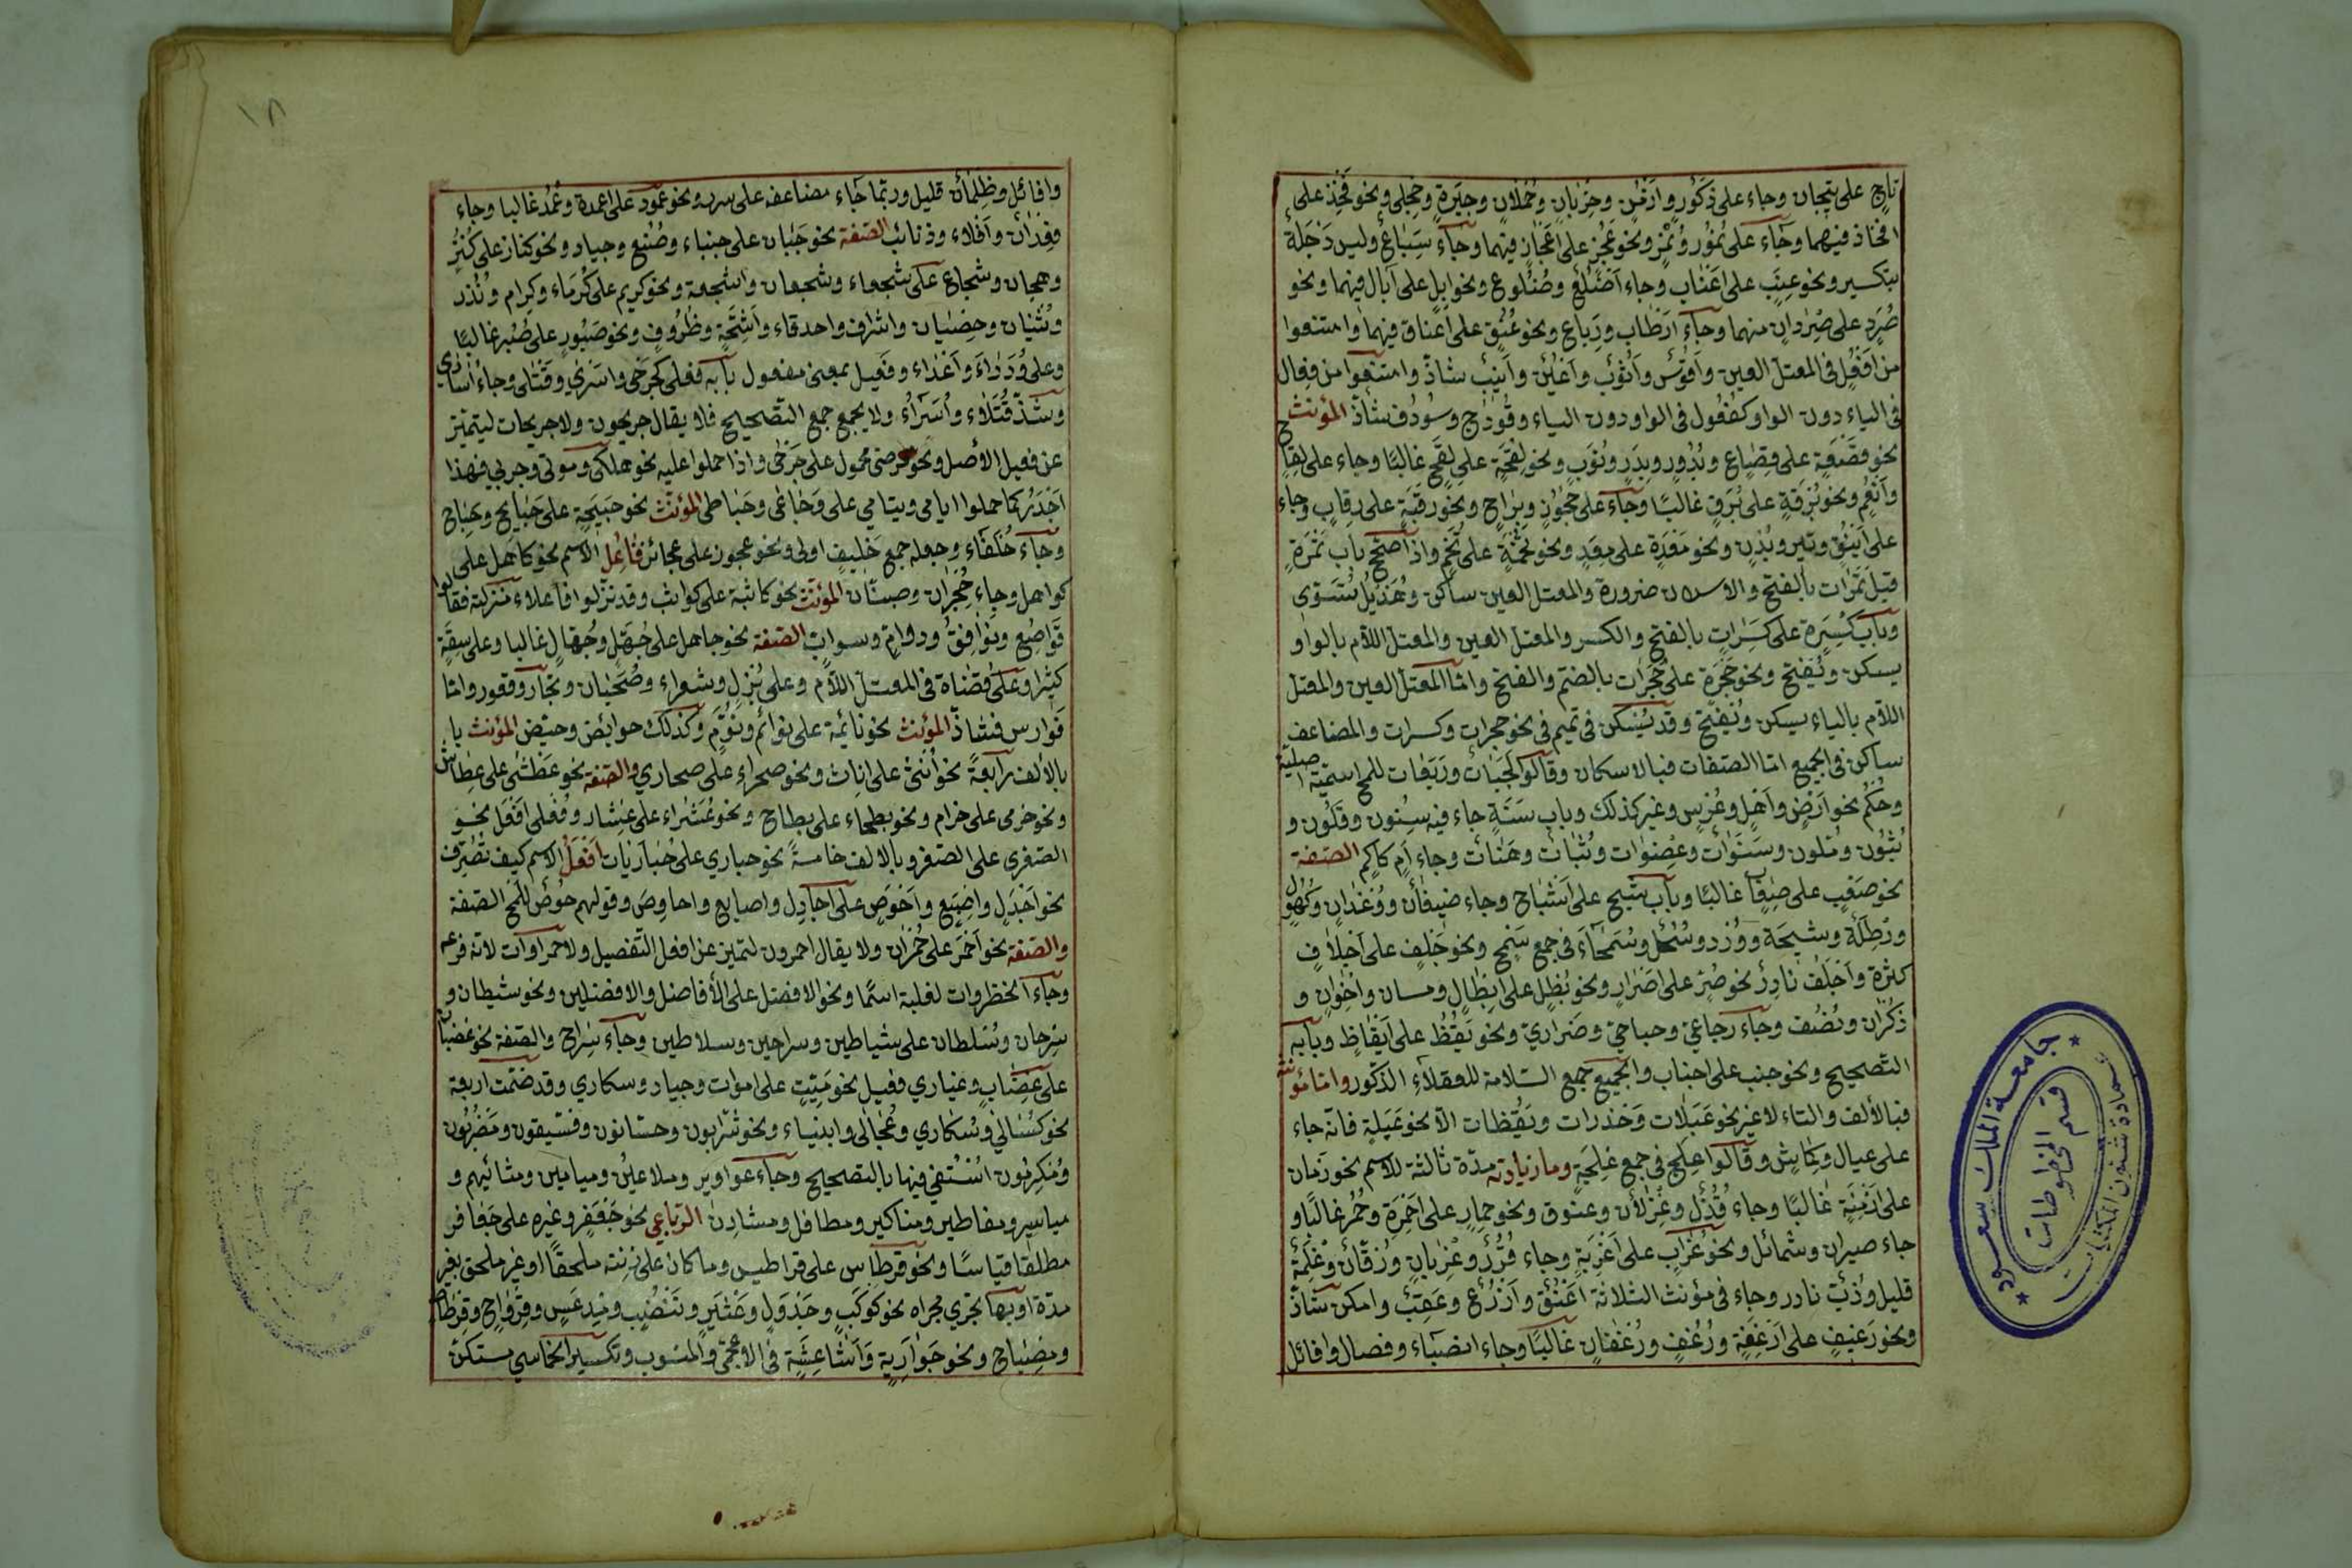 تاج على تيجان وجاء على ذكور وازمن وخربان وحملان وجيرة وحجلى ونحو فخذ على
افخاذ فيهما وجاء على نمور ونمر ونحو عجز على اعجاز فيهما وجاء سباع وليس رجلة
بتكسير ونحو عنب على اعناب وجاء اضلع وضلوع ونحو ابل على آبال فيهما ونحو
صرد على صردان منهما وجاء ارطاب ورباع ونحو عنق على اعناق فيهما وامتنعوا
من افعل فى المعتل العين واقوس واثوب واعين وانيب شاذ وامتنعوا من فعال
فى الياء دون الواو كفعول فى الواو دون الياء وفووج وسووق شاذ المؤنث
نحو قصعة على قصاع وبدور وبدر ونوب ونحو لقحة على لقح غالبا وجاء على لقاح
وانعم ونحو برقة على برق غالبا وجاء على حجوز وبرام ونحو رقبة على رقاب وجاء
على اينق وتير وبدن ونحو معدة على معد ونحو تخمة على تخم واذا صحح باب تمرة
قيل تمرات بالفتح والاسكان ضرورة والمعتل العين ساكن وهذيل تسوى
وباب كسرة على كسرات بالفتح والكسر والمعتل العين والمعتل اللام بالواو
يسكن ويفتح ونحو حجرة على حجرات بالضم والفتح واما المعتل العين والمعتل
اللام بالياء يسكن ويفتح وقد يسكن فى تميم فى نحو حجرات وكسرات والمضاعف
ساكن فى الجميع اما الصفات فبالاسكان وقالوا لجبات وربعات للمح اسمية اصلية
وحكم نحو ارض واهل وعرس وعير كذلك وباب سنة جاء فيه سنون وقلون و
ثبون وقلون وسنوات وعضوات وثبات وهنات وجاء آم كآكم الصفة
نحو صعب على صعاب غالبا وباب شيخ على اشياخ وجاء ضيفان ووغدان وكهول
ورطلة وشيخة وورد وسحل وسمحاء فى جمع سمح ونحو جلف على اجلاف
كثرة واجلف نادر نحو حر على احرار ونحو بطل على ابطال وحسان واخوان و
ذكران ونصف وجاء وجاعى وحباطى وحذارى ونحو يقظ على ايقاظ وبابه
التصحيح ونحو جنب على اجناب والجميع جمع السلامة للعقلاء الذكور واما مؤنثه
فبالالف والتاء لا غير نحو عبلات وحذرات ويقظات الا نحو عبلة فانه جاء
على عبال وكماش وقالوا علج فى جمع علجة وما زيادته مدة ثالثة للاسم نحو زمان
على ازمنة غالبا وجاء قذل وغزلان وعنوق ونحو حمار على احمرة وحمر غالبا و
جاء صيران وشمائل ونحو غراب على اغربة وجاء قرد وغربان وزقان وغلمة
قليل وذب نادر وجاء فى مؤنث الثلاثة اعنق واذرع واعقب وامكن شاذ
ونحو رغيف على ارغفة ورغف ورغفان غالبا وجاء انصباء وفصال وافائل
١٨
وافائل وظلمان قليل وربما جاء مضاعفه على سرر ونحو عمود على اعمدة وعمد غالبا وجاء
قعدان وافلاء وذنائب الصفة نحو جبان على جبناء وصنع وجياد ونحو كناز على كنز
وهجان وشجاع على شجعاء وشجعان واشجعة ونحو كريم على كرماء وكرام ونذر
وثنيان وخصيان واشراف واصدقاء واشحة وظروف ونحو صبور على صبر غالبا
وعلى ودداء واعداء وفعيل بمعنى مفعول بابه فعلى كجرحى واسرى وقتلى وجاء اسارى
وشذ قتلاء واسراء ولا يجمع جمع التصحيح فلا يقال جريحون ولا جريحات ليتميز
عن فعيل الاصل ونحو مرضى محمول على جرحى واذا حملوا عليه نحو هلكى وموتى وجربى فهذا
اجدر كما حملوا ايامى ويتامى على وجاعى وحباطى المؤنث نحو صبيحة على صبايح وصباح
وجاء خلفاء وجعله جمع خليف اولى ونحو عجوز على عجائز فاعل الاسم نحو كاهل على
كواهل وجاء حجران وجنان المؤنث نحو كاثبة على كواثب وقد نزلوا فاعلاء منزلته فقالوا
قواصع ونوافق ودوام وسواب الصفة نحو جاهل على جهل وجهال غالبا وعلى فسقة
كثيرا وعلى قضاة فى المعتل اللام وعلى بزل وشعراء وصحبان وتجار وقعود واما
فوارس فشاذ المؤنث نحو نائمة على نوائم ونوم وكذلك حوائض وحيض المؤنث با
بالالف رابعة نحو انثى على اناث ونحو صحراء على صحارى والصفة نحو عطشى على عطاش
ونحو حرمى على حرام ونحو بطحاء على بطاح ونحو عشراء على عشار وفعلى افعل نحو
الصغرى على الصغر وبالالف خامسة نحو حبارى على حباريات افعل الاسم كيف تصرف
نحو اجدل واصبع واحوص على اجادل واصابع واحاوص وقولهم حوص للمح الصفة
والصفة نحو احمر على حمران ولا يقال احمرون لتميز عن افعل التفضيل ولا حمراوات لانه فرعه
وجاء الخضروات لغلبة اسما ونحو الافضل على الافاضل والافضلين ونحو شيطان و
سرحان وسلطان على شياطين وسراحين وسلاطين وجاء سراح والصفة نحو غضبان
على غضاب وغيارى فعيل نحو ميت على اموات وجياد وسكارى وقد ضمت اربعة
نحو كسالى وسكارى وعجالى وابيناء ونحو شرابون وحسانون وفسيقون ومضربون
ومكرمون استغنى فيها بالتصحيح وجاء عواوير وملاعين وميامين ومشائيم و
مياسير ومفاطير ومناكير ومطافل ومشادن الرباعى نحو جعفر وغيره على جعافر
مطلقا قياسا ونحو قرطاس على قراطيس وما كان على زنته ملحقا او غير ملحق بغير
مدة او بها يجرى مجراه نحو كوكب وجدول وعثير وتنضب ومدعس وقرواح وقرطاط
ومصباح ونحو جواربة واشاعثة فى الاعجمى والمنسوب وتكسير الخماسى مستكره
جامعة الملك سعود
عمادة شئون المكتبات
قسم المخطوطات